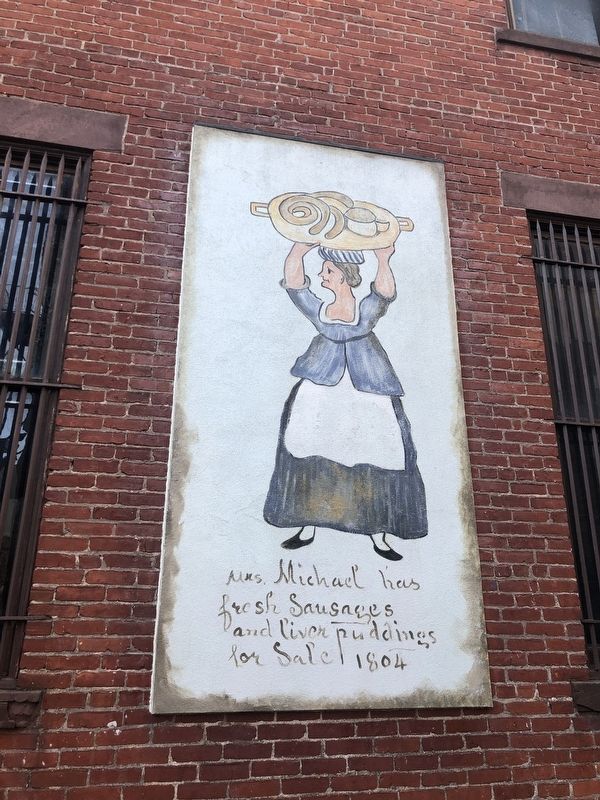 Mrs. Michael has
fresh Sausages
and liver puddings
for Sale 1804